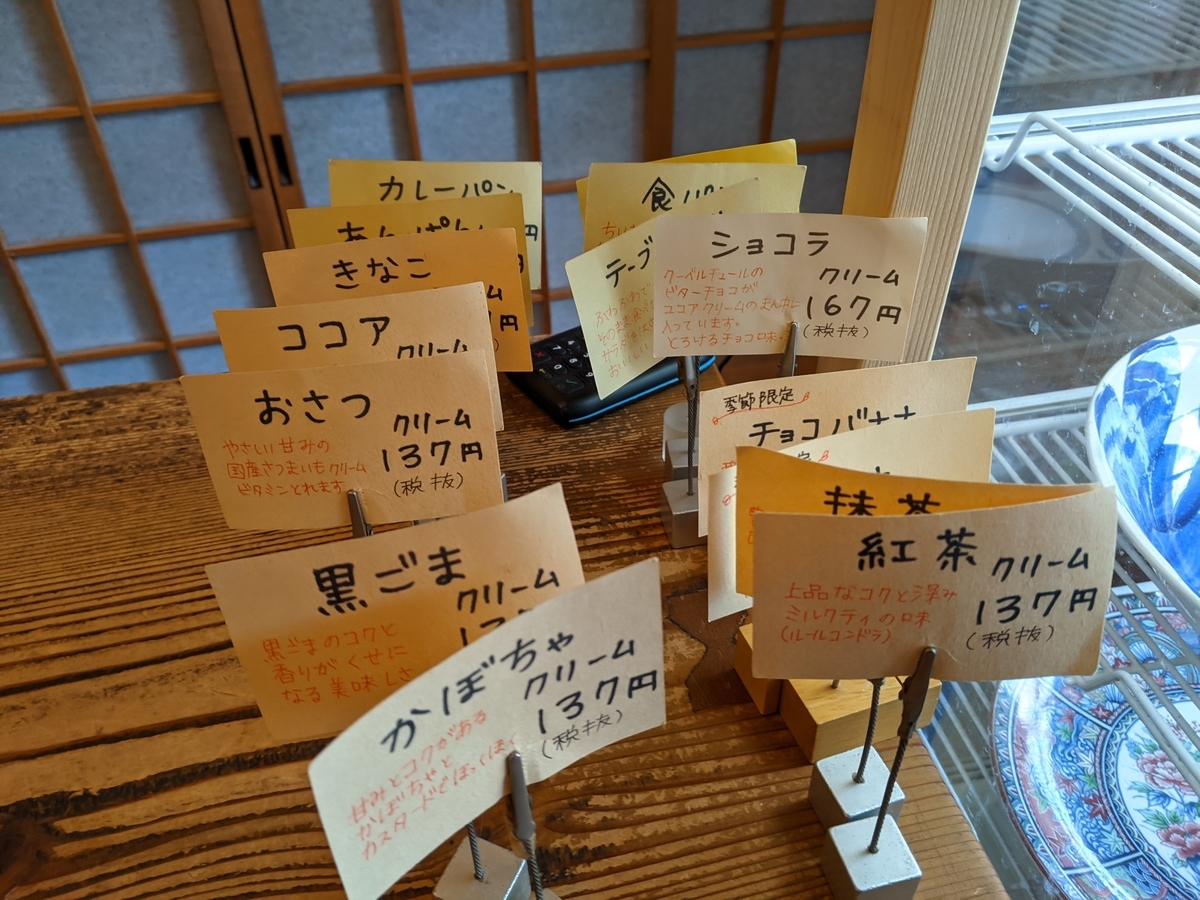 カレーパン
円
あんぱん
きなこ
ム
円
ココア
クリーム
おさつ
クリーム
137円
(税抜)
やさしい甘みの
国産さつまいもクリーム
ビタミンとれます
黒ごま
クリーム
黒ごまのコクと
香りがくせに
なる美味しさ
かぼちゃ
クリーム
137円
(税抜)
甘みとコクがある
かぼちゃと
カスタードでほっくほく
食パン
テーブ
ショコラ
クリーム
167円
(税抜)
クーベルチュールの
ビターチョコが
ココアクリームのまん中に
入っています。
とろけるチョコ味。
季節限定
チョコバナナ
抹茶
紅茶
クリーム
137円
(税抜)
上品なコクと深み
ミルクティの味
(ルールコンドラ)